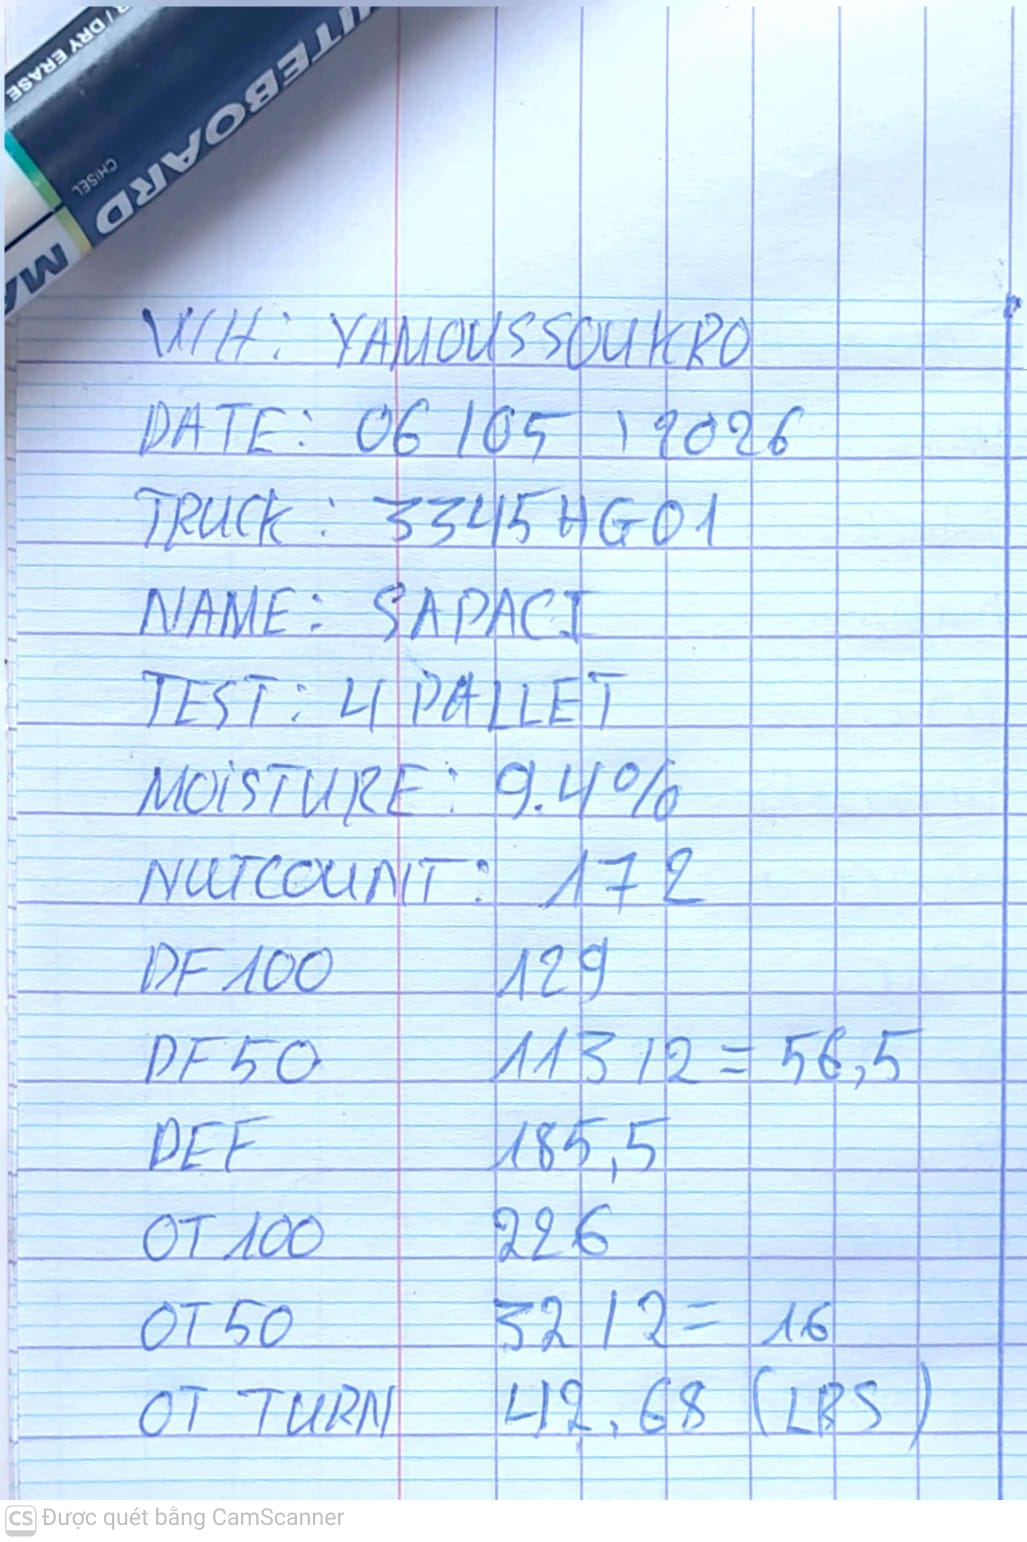 / DRY ERASE
WHITEBOARD MA
CHISEL
W/H: YAMOUSSOUKRO
DATE: 06/05/2026
TRUCK: 3345HG01
NAME: SAPACI
TEST: 4 PALLET
MOISTURE: 9.4%
NUTCOUNT: 172
DF 100 129
DF 50 113/2 = 56,5
DEF 185,5
OT 100 226
OT 50 32/2 = 16
OT TURN 42.68 (LBS)
CS Được quét bằng CamScanner